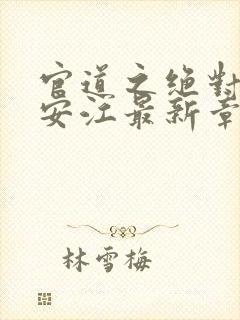 官道之绝對
安江最新章
林雪梅